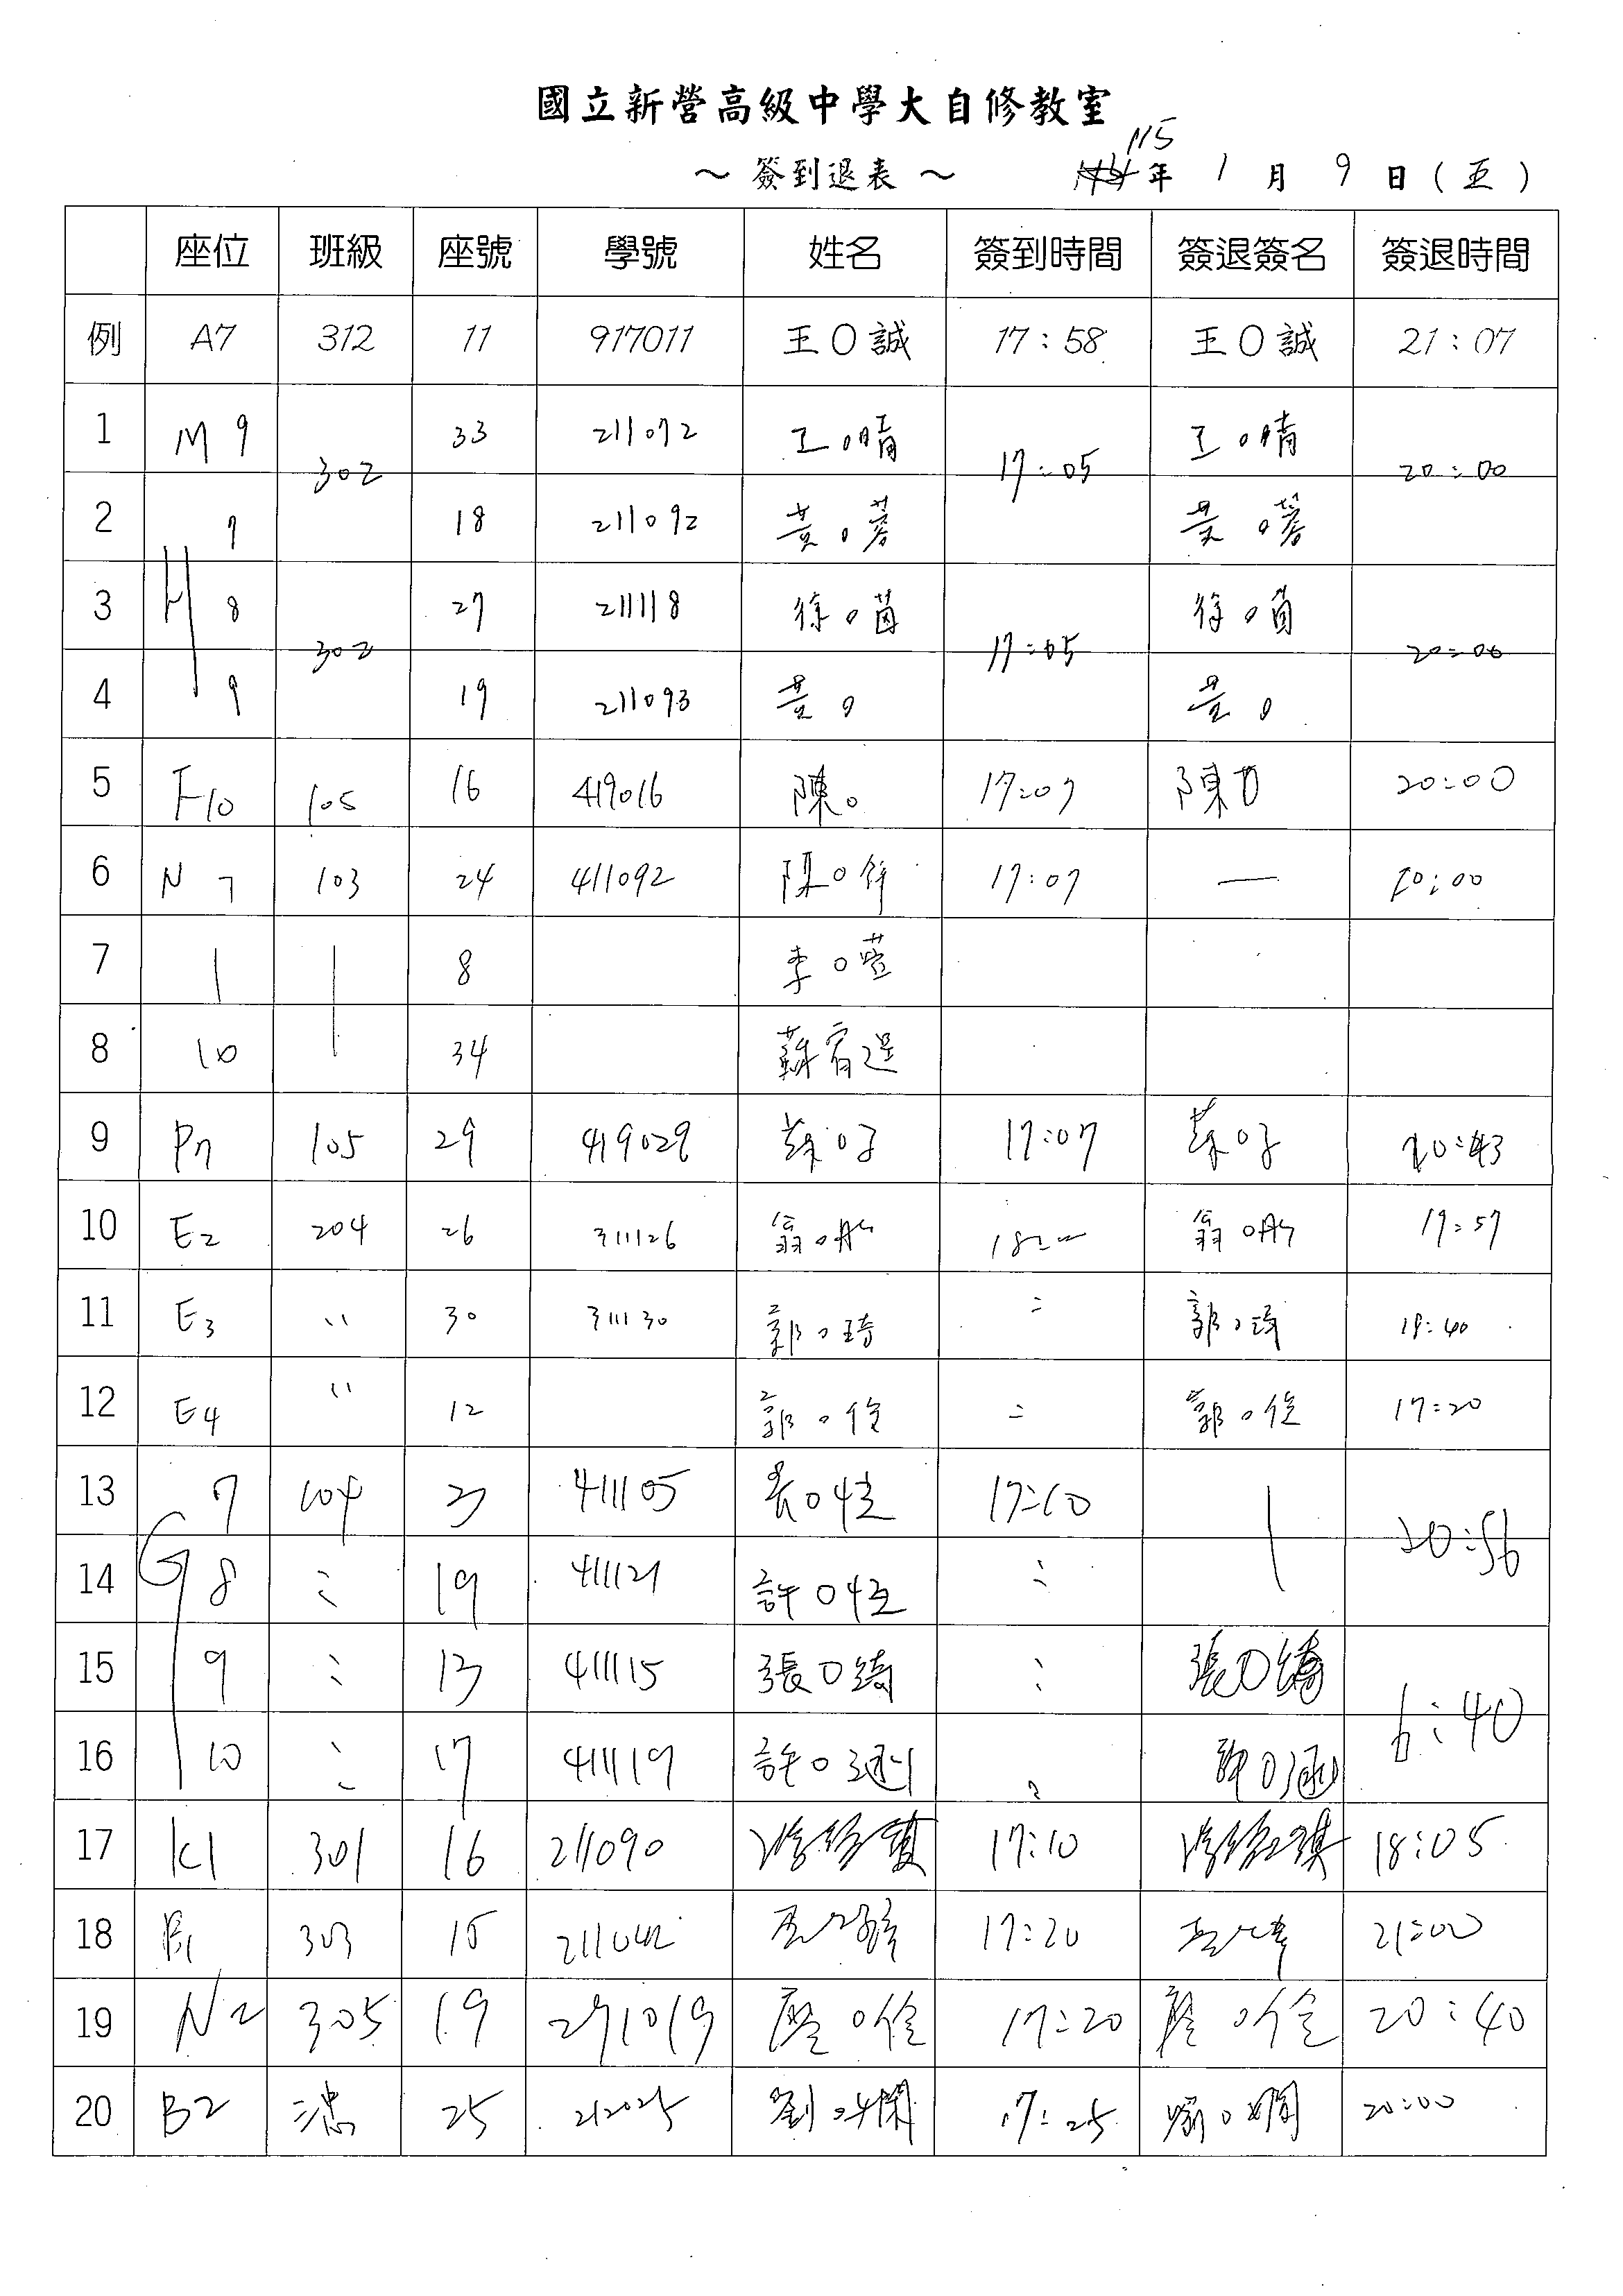 國立新營高級中學大自修教室
～ 簽到退表 ～ 115 年 1 月 9 日 ( 五 )
座位 班級 座號 學號 姓名 簽到時間 簽退簽名 簽退時間
例 A7 312 11 917011 王O誠 17:58 王O誠 21:07
1 M 9 302 33 211072 王O晴 17:05 王O晴 20:00
2 H 7 18 211092 黃O蓉 黃O蓉
3 8 302 27 211118 徐O茵 17:05 徐O茵 20:00
4 9 19 211093 黃O 黃O
5 F10 105 16 419016 陳O 17:07 陳O 20:00
6 N 7 103 24 411092 陳O 17:07 — 20:00
7 | | 8 李O萱
8 10 | 34 蘇宥
9 P7 105 29 419029 蔡O子 17:07 蔡O子 20:43
10 E2 204 26 311126 翁O 18: 翁O 19:57
11 E3 〃 30 311130 郭O琦 〃 郭O琦 18:40
12 E4 〃 12 郭O佺 〃 郭O佺 17:20
13 G 7 104 411105 O恆 17:10 | 20:56
14 8 〃 19 411121 許O恆 〃
15 9 〃 13 411115 張O綺 〃 張O綺 6:40
16 10 〃 17 411119 許O 〃 許O
17 K1 301 16 211090 17:10 18:05
18 303 15 17:20 21:00
19 N2 305 19 291019 O佺 17:20 O佺 20:40
20 B2 忠 25 212025 劉O嫻 17:25 劉O嫻 20:00